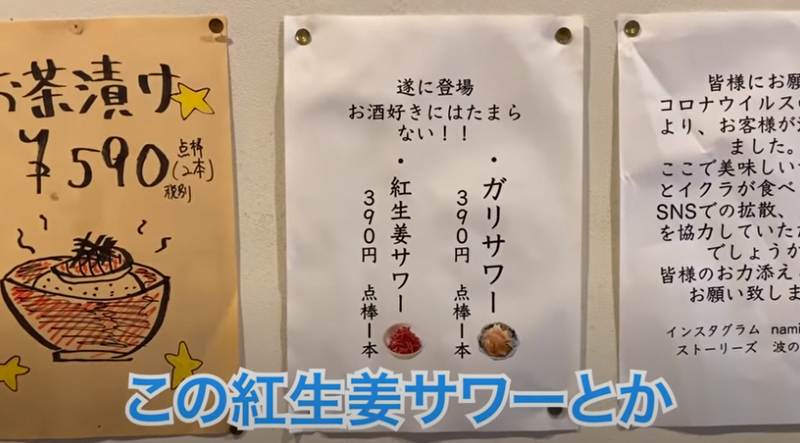 お茶漬け
¥590
点棒
(2本)
税別
遂に登場
お酒好きにはたまら
ない！！
・ガリサワー
390円 点棒1本
・紅生姜サワー
390円 点棒1本
皆様にお願
コロナウイルス
より、お客様が
ました。
ここで美味しい
とイクラが食べ
SNSでの拡散、
を協力していただ
でしょうか
皆様のお力添え
お願い致しま
インスタグラム nami
ストーリーズ 波の
この紅生姜サワーとか